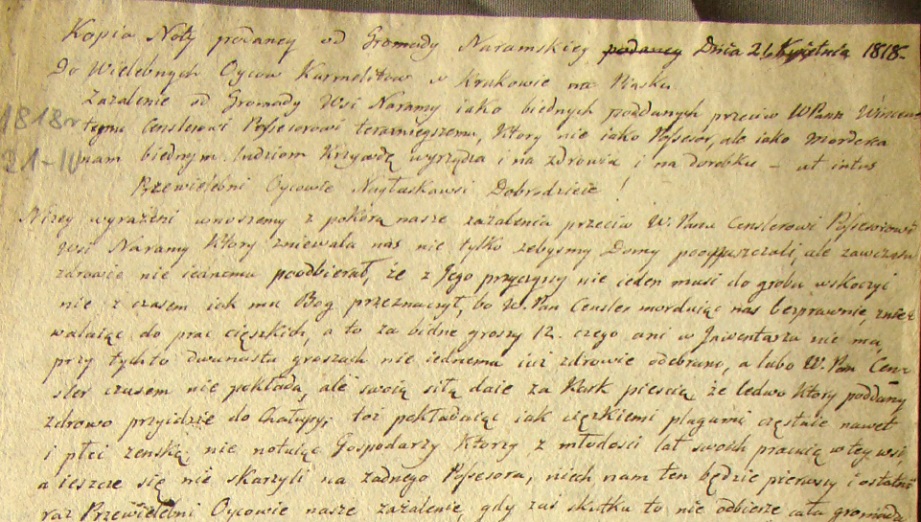 Kopia Noty podaney od Gromady Naramskiey podaney Dnia 21 Kwietnia 1818
Do Wielebnych Oycow Karmelitow w Krakowie na Piasku
Zażalenie od Gromady Wsi Naramy iako biednych poddanych przeciw WPanu Wincen-
1818r
temu Censlerowi Possesorowi teraznieyszemu, Ktory nie iako Possesor, ale iako Morderca
21-IV
nam biednym Ludziom Krzywdę wyrządza i na zdrowiu i na dorobku – ut intus
Przewielebni Oycowie Nayłaskawsi Dobrodzieie!
Nizey wyrażeni wnosiemy z pokorą nasze zażalenia przeciw W. Panu Censlerowi Possesorowi
Wsi Naramy Ktory zniewala nas nie tylko żebyśmy Domy poopuszczali, ale zawczasu
zdrowie nie iednemu poodbierał, że z Jego przyczyny nie ieden musi do grobu wskoczyć
nie z czasem iak mu Bog przeznaczył, bo W. Pan Censler morduiąc nas bezprawnie, znie-
walaiąc do prac cięszkich, a to za bidne groszy 12. czego ani w Jnwentarzu nie ma,
przy tychto dwunastu groszach nie iednemu iuż zdrowie odebrano, a lubo W. Pan Cen-
sler czasem nie pokłada, ale swoią siłą daie za Kark pięscią, że ledwo Ktory poddany
zdrowo przyidzie do Chałupy, toż pokładaiąc iak cięzkiemi plagami częstuie nawet
i płci zenskiey nie notuiąc Gospodarzy Ktorzy z młodosci lat swoich pracuią w tey wsi,
a ieszcze się nie skarzyli na żadnego Possesora, niech nam ten będzie pierwszy i ostatni
raz Przewielebni Oycowie nasze zażalenie, gdy zas skutku to nie odbierze cała gromada